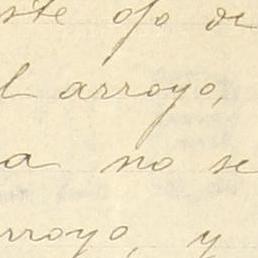 ste ojo de
l arroyo,
a no se
rroyo, y